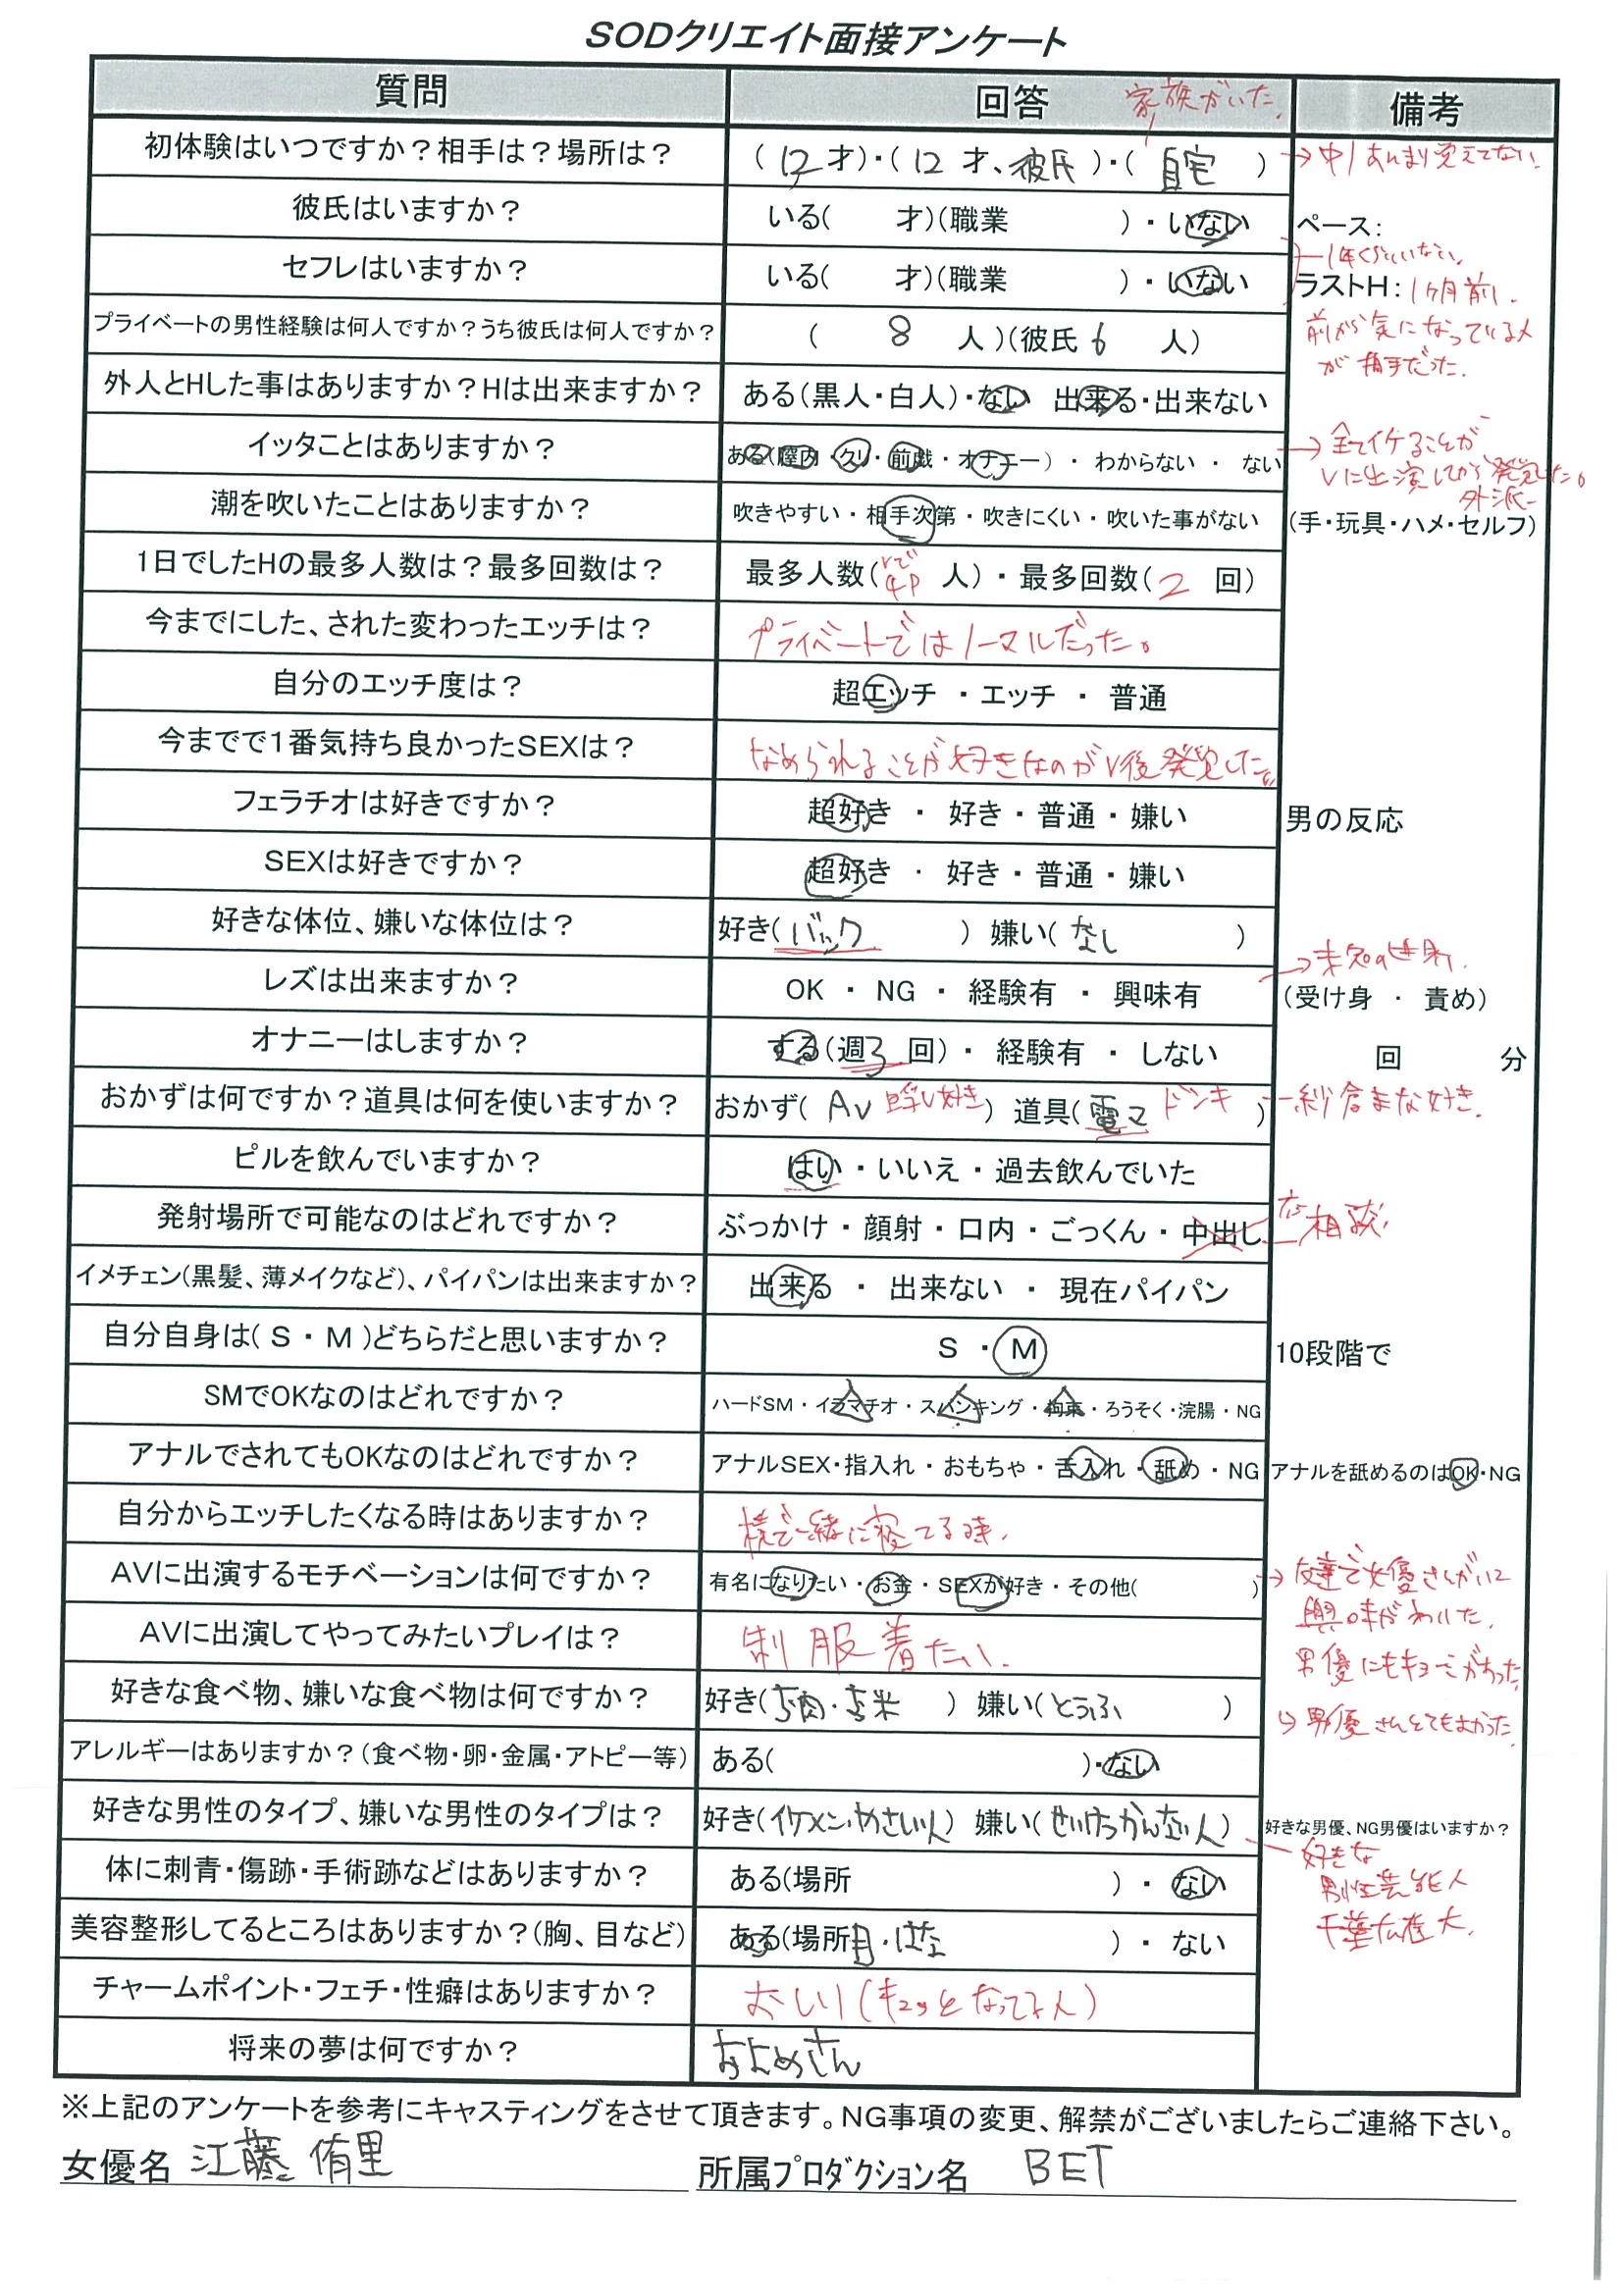 SODクリエイト面接アンケート
質問 回答 備考
彼氏はいますか? いる( 才)(職業 )・いない ペース:
セフレはいますか? いる( 才)(職業 )・いない ラストH:1ヶ月前.
プライベートの男性経験は何人ですか?うち彼氏は何人ですか? ( 8 人)(彼氏 6 人) 前から気になっている人
が相手だった.
外人とHした事はありますか?Hは出来ますか? ある(黒人・白人)・ない 出来る・出来ない
イッタことはありますか? ある(膣内・クリ・前戯・オナニー)・わからない・ない →全てイケることが
Vに出演してから発覚した。
外派
潮を吹いたことはありますか? 吹きやすい・相手次第・吹きにくい・吹いた事がない (手・玩具・ハメ・セルフ)
1日でしたHの最多人数は?最多回数は? 最多人数(Vで4P 人)・最多回数(2 回)
今までにした、された変わったエッチは? プライベートではノーマルだった。
自分のエッチ度は? 超エッチ・エッチ・普通
今までで1番気持ち良かったSEXは? なめられることが好きなのがV後発覚した。
フェラチオは好きですか? 超好き・好き・普通・嫌い 男の反応
SEXは好きですか? 超好き・好き・普通・嫌い
好きな体位、嫌いな体位は? 好き(バック ) 嫌い(なし )
→未知の世界.
レズは出来ますか? OK・NG・経験有・興味有 (受け身・責め)
オナニーはしますか? する(週3回)・経験有・しない 回 分
おかずは何ですか?道具は何を使いますか? おかず(AV 好き) 道具(電マ ドンキ ) 紗倉まな好き.
ピルを飲んでいますか? はい・いいえ・過去飲んでいた
発射場所で可能なのはどれですか? ぶっかけ・顔射・口内・ごっくん・中出し 相談
イメチェン(黒髪、薄メイクなど)、パイパンは出来ますか? 出来る・出来ない・現在パイパン
自分自身は(S・M)どちらだと思いますか? S・M 10段階で
SMでOKなのはどれですか? ハードSM・イラマチオ・スパンキング・拘束・ろうそく・浣腸・NG
アナルでされてもOKなのはどれですか? アナルSEX・指入れ・おもちゃ・舌入れ・舐め・NG アナルを舐めるのはOK・NG
自分からエッチしたくなる時はありますか? 横で一緒に寝てる時.
AVに出演するモチベーションは何ですか? 有名になりたい・お金・SEXが好き・その他( ) →友達で女優さんがいて
興味がわいた.
AVに出演してやってみたいプレイは? 制服着たい. 男優にもキョーミがあった
好きな食べ物、嫌いな食べ物は何ですか? 好き(お肉・お米 ) 嫌い(とうふ ) ↳男優さんとてもよかった
アレルギーはありますか?(食べ物・卵・金属・アトピー等) ある( )・ない
好きな男性のタイプ、嫌いな男性のタイプは? 好き(イケメン・やさしい人) 嫌い(せいけつかんない人) 好きな男優、NG男優はいますか?
好きな
体に刺青・傷跡・手術跡などはありますか? ある(場所 )・ない 男性芸能人
美容整形してるところはありますか?(胸、目など) ある(場所 目・はな )・ない 千葉雄大.
チャームポイント・フェチ・性癖はありますか? おしり(キュッとなってる人)
将来の夢は何ですか? およめさん
※上記のアンケートを参考にキャスティングをさせて頂きます。NG事項の変更、解禁がございましたらご連絡下さい。
女優名 江藤侑里 所属プロダクション名 BET